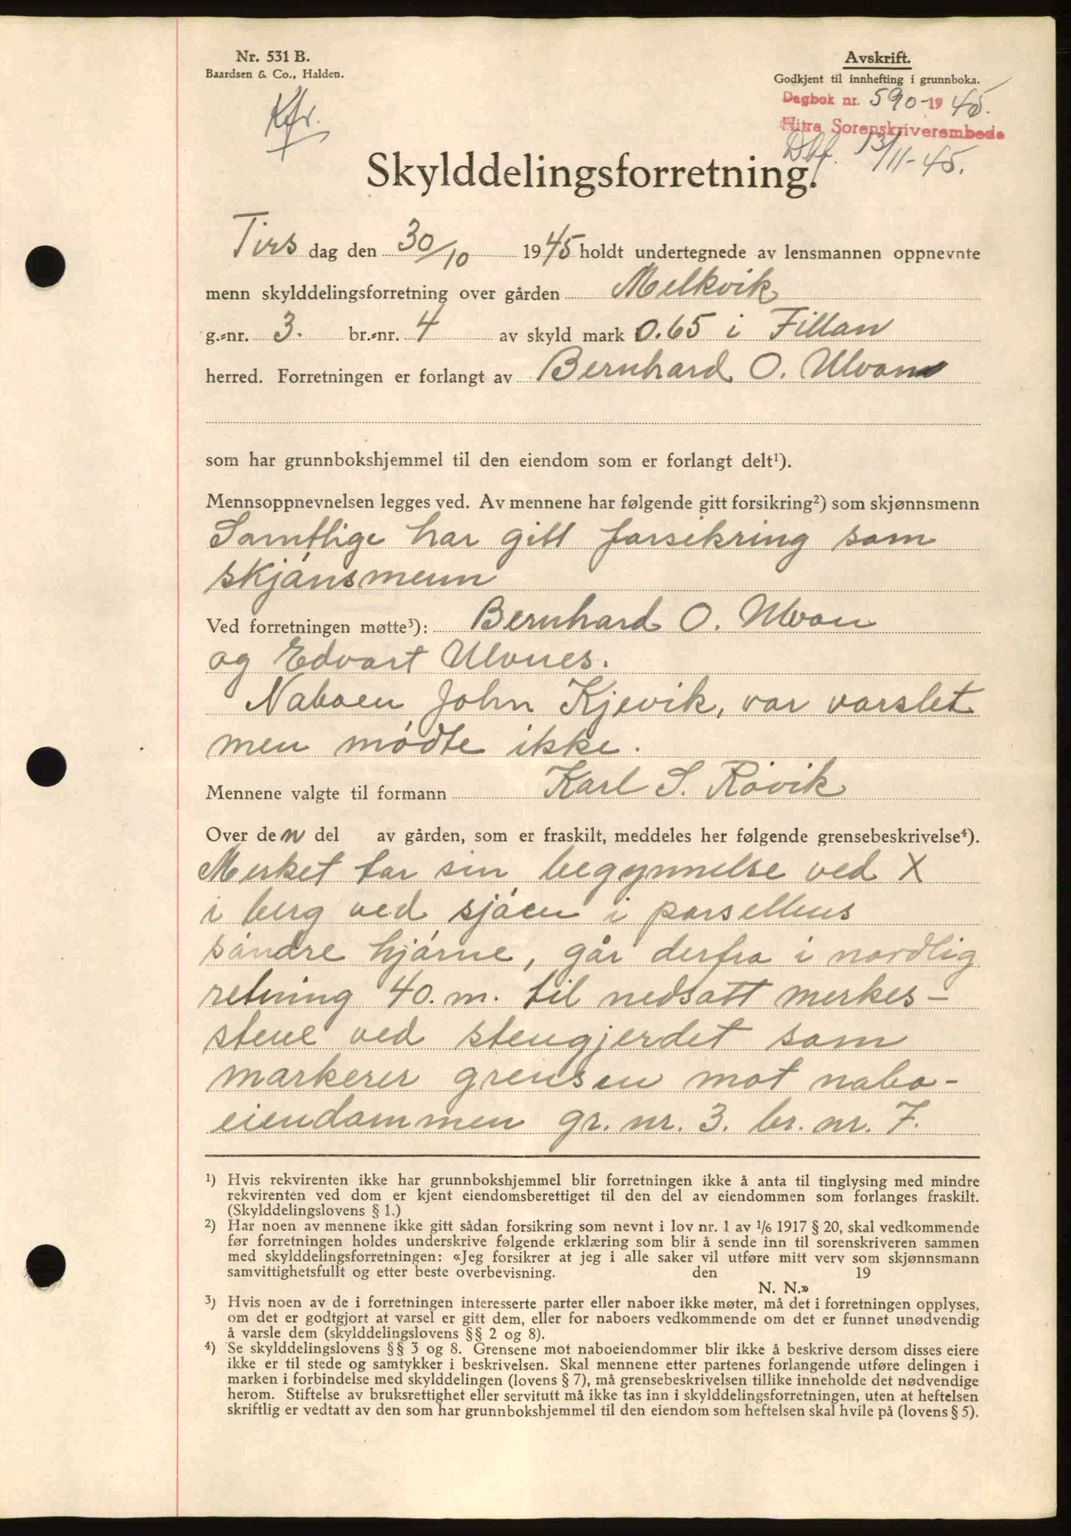 Nr. 531 B.
Baardsen & Co., Halden.
Kfr.
Avskrift.
Godkjent til innhefting i grunnboka.
Dagbok nr. 590-1945.
Hitra Sorenskriverembede
Dbf. 13/11-45.
Skylddelingsforretning.
Tirs dag den 30/10 1945 holdt undertegnede av lensmannen oppnevnte
menn skylddelingsforretning over gården Melkvik
g.-nr. 3. br.-nr. 4 av skyld mark 0.65 i Fillan
herred. Forretningen er forlangt av Bernhard O. Ulvan
som har grunnbokshjemmel til den eiendom som er forlangt delt¹).
Mennsoppnevnelsen legges ved. Av mennene har følgende gitt forsikring²) som skjønnsmenn
Samtlige har gitt forsikring som
skjønsmenn
Ved forretningen møtte³): Bernhard O. Ulvan
og Edvart Ulvnes.
Naboen John Kjevik, var varslet
men mødte ikke.
Mennene valgte til formann Karl S. Røvik
Over den del av gården, som er fraskilt, meddeles her følgende grensebeskrivelse⁴).
Merket tar sin begynnelse ved X
i berg ved sjøen i parsellens
søndre hjørne, går derfra i nordlig
retning 40. m. til nedsatt merkes-
stene ved stengjerdet som
markerer grensen mot nabo-
eiendommen gr. nr. 3. br. nr. 7.
¹) Hvis rekvirenten ikke har grunnbokshjemmel blir forretningen ikke å anta til tinglysing med mindre
rekvirenten ved dom er kjent eiendomsberettiget til den del av eiendommen som forlanges fraskilt.
(Skylddelingslovens § 1.)
²) Har noen av mennene ikke gitt sådan forsikring som nevnt i lov nr. 1 av 1/6 1917 § 20, skal vedkommende
før forretningen holdes underskrive følgende erklæring som blir å sende inn til sorenskriveren sammen
med skylddelingsforretningen: «Jeg forsikrer at jeg i alle saker vil utføre mitt verv som skjønnsmann
samvittighetsfullt og etter beste overbevisning. den 19
N. N.»
³) Hvis noen av de i forretningen interesserte parter eller naboer ikke møter, må det i forretningen opplyses,
om det er godtgjort at varsel er gitt dem, eller for naboers vedkommende om det er funnet unødvendig
å varsle dem (skylddelingslovens §§ 2 og 8).
⁴) Se skylddelingslovens §§ 3 og 8. Grensene mot naboeiendommer blir ikke å beskrive dersom disses eiere
ikke er til stede og samtykker i beskrivelsen. Skal mennene etter partenes forlangende utføre delingen i
marken i forbindelse med skylddelingen (lovens § 7), må grensebeskrivelsen tillike inneholde det nødvendige
herom. Stiftelse av bruksrettighet eller servitutt må ikke tas inn i skylddelingsforretningen, uten at heftelsen
skriftlig er vedtatt av den som har grunnbokshjemmel til den eiendom som heftelsen skal hvile på (lovens § 5).